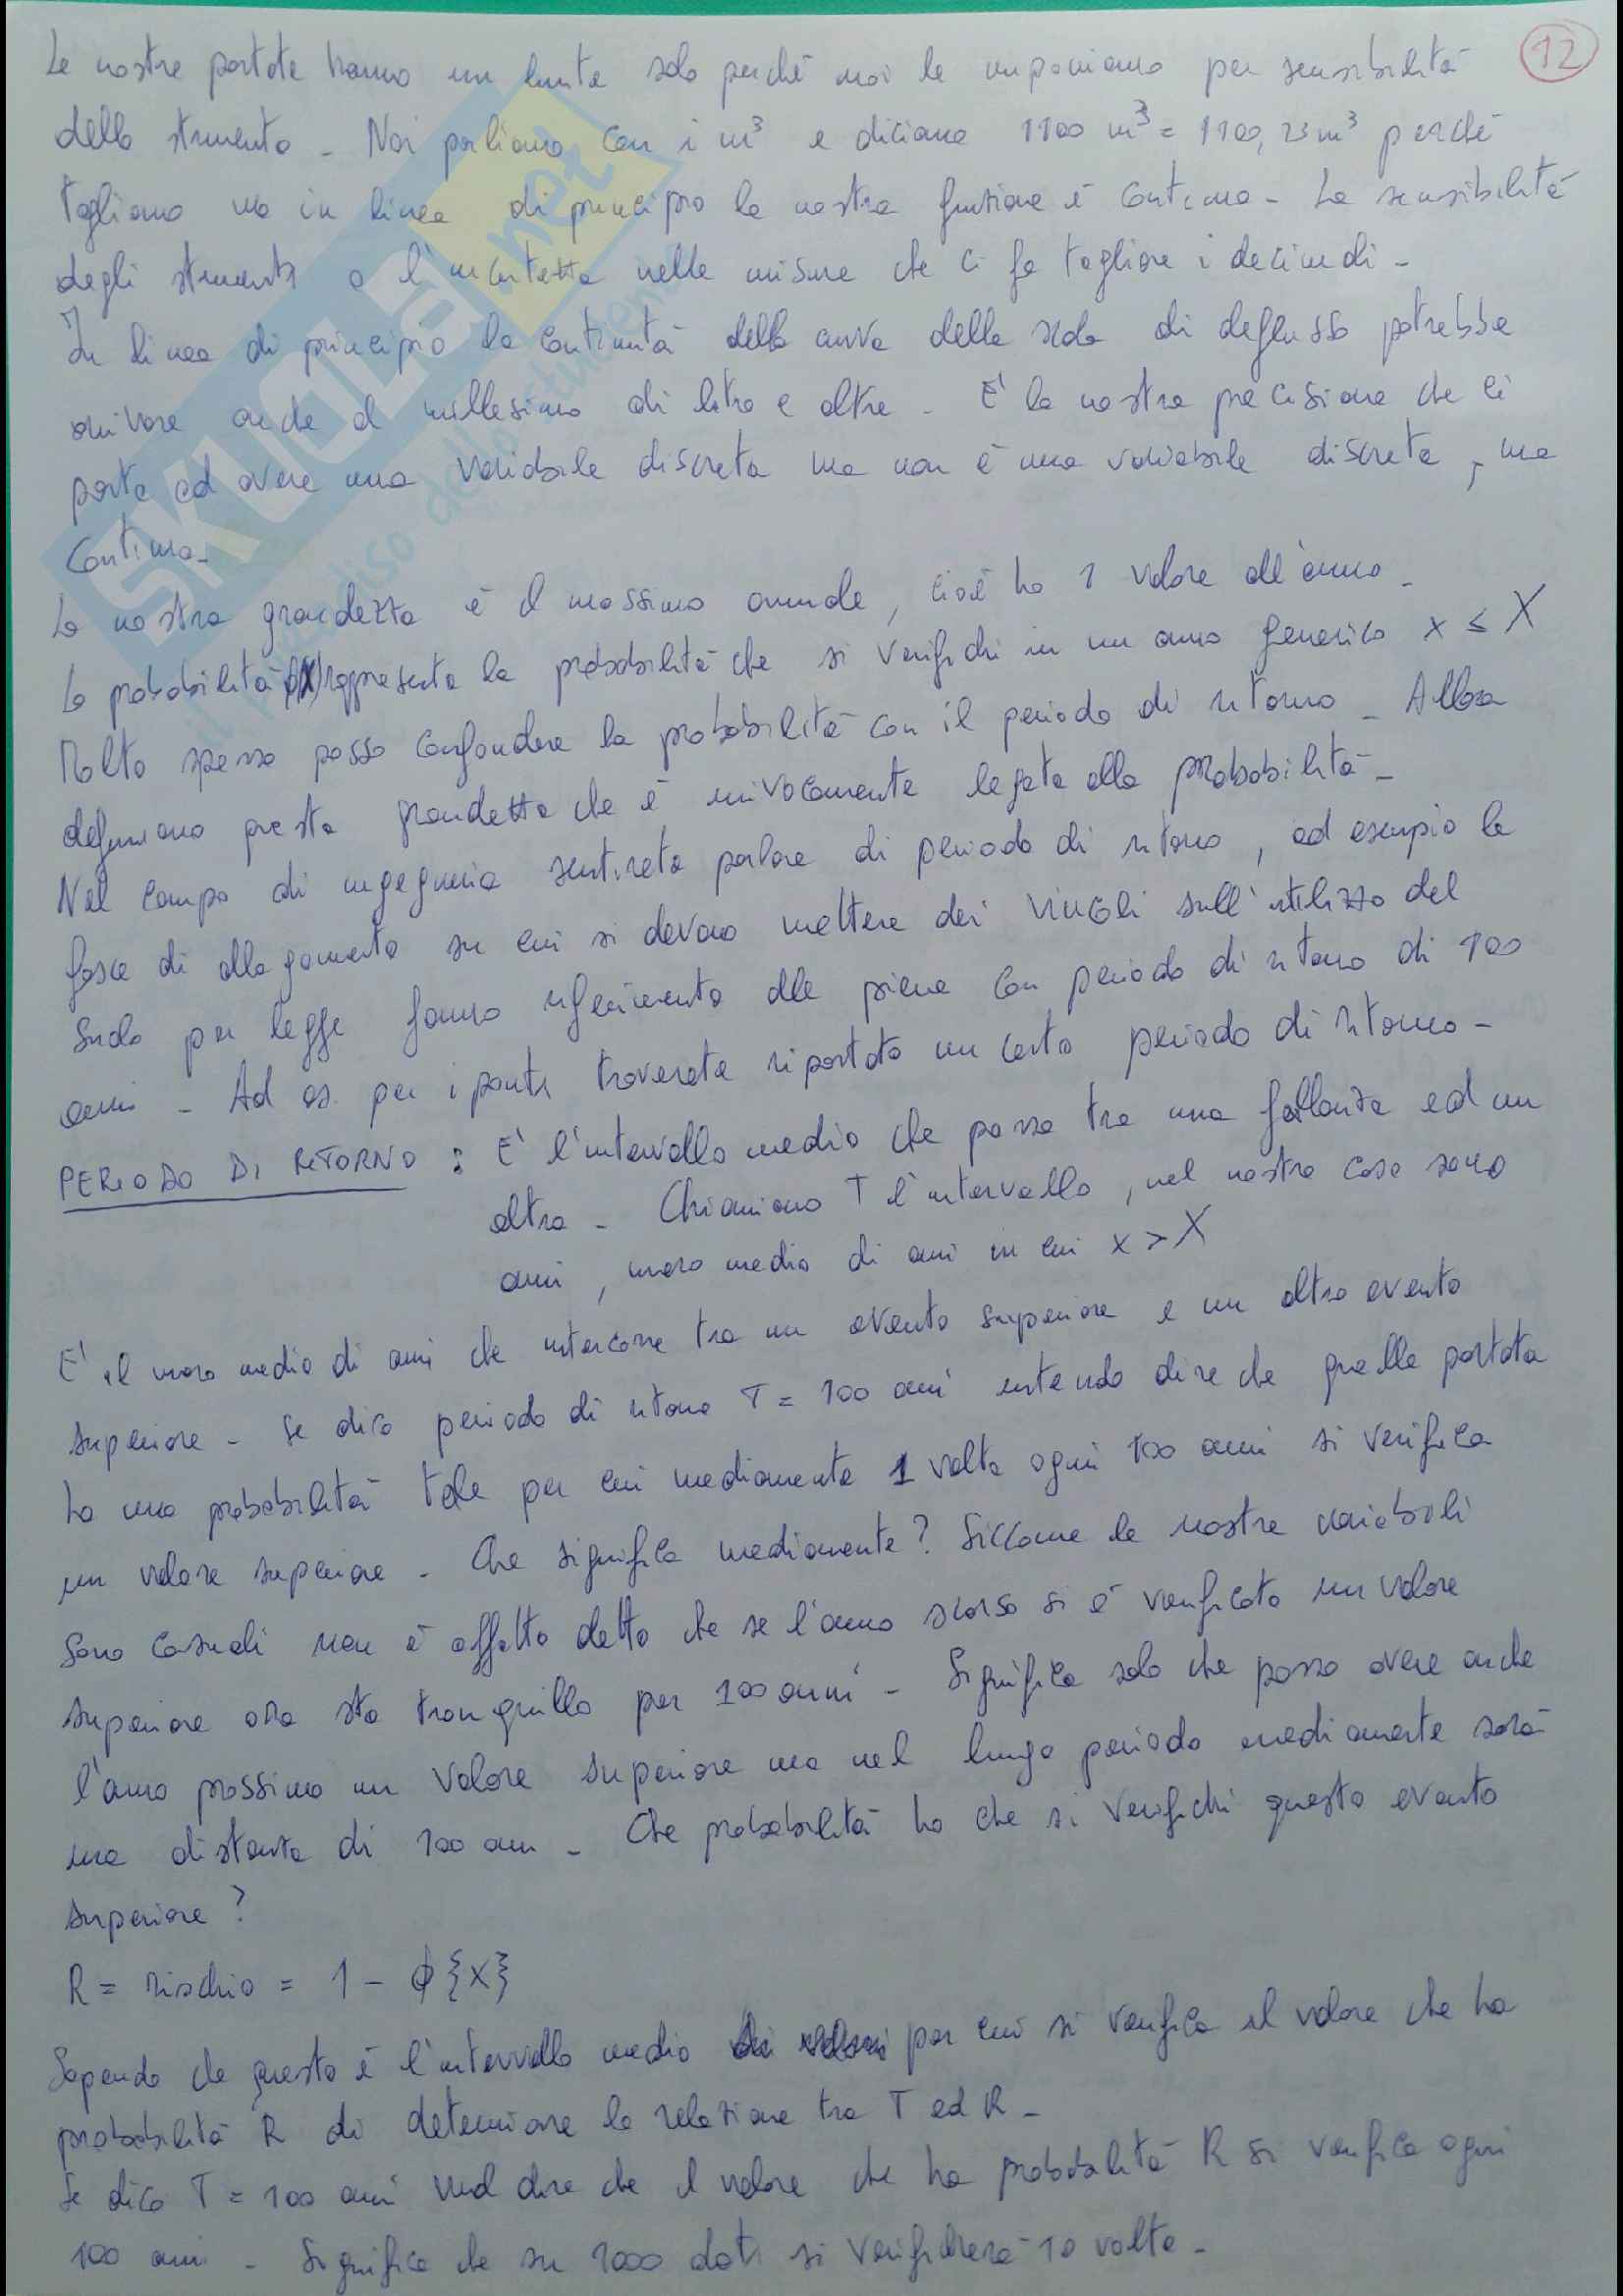 12
Le nostre portate hanno un limite solo perché noi le imponiamo per sensibilità
dello strumento - Noi parliamo con i m³ e diciamo 1100 m³ = 1100,23 m³ perché
tagliamo ma in linea di principio la nostra funzione è continua - La sensibilità
degli strumenti o l'incertezza nelle misure che ci fa togliere i decimali -
In linea di principio la continuità della curva della scala di deflusso potrebbe
arrivare anche al millesimo di litro e oltre - È la nostra precisione che ci
porta ad avere una variabile discreta ma non è una variabile discreta, ma
continua -
La nostra grandezza è il massimo annuale, cioè ho 1 valore all'anno -
La probabilità rappresenta la probabilità che si verifichi in un anno generico x ≤ X
Molto spesso posso confondere la probabilità con il periodo di ritorno - Allora
definiamo questa grandezza che è univocamente legata alla probabilità -
Nel campo di ingegneria sentirete parlare di periodo di ritorno, ad esempio le
fasce di allagamento su cui si devono mettere dei vincoli sull'utilizzo del
suolo per legge fanno riferimento alle piene con periodo di ritorno di 100
anni - Ad es. per i ponti troverete riportato un certo periodo di ritorno -
PERIODO DI RITORNO : È l'intervallo medio che passa tra una fallanza ed un
altra - Chiamiamo T l'intervallo, nel nostro caso sono
anni, numero medio di anni in cui x > X
È il numero medio di anni che intercorre tra un evento superiore e un altro evento
superiore - Se dico periodo di ritorno T = 100 anni intendo dire che quella portata
ha una probabilità tale per cui mediamente 1 volta ogni 100 anni si verifica
un valore superiore - Che significa mediamente? Siccome le nostre variabili
sono casuali non è affatto detto che se l'anno scorso si è verificato un valore
superiore ora sto tranquillo per 100 anni - Significa solo che posso avere anche
l'anno prossimo un valore superiore ma nel lungo periodo mediamente sarà
una distanza di 100 anni - Che probabilità ho che si verifichi questo evento
superiore?
R = rischio = 1 - ϕ{X}
Sapendo che questo è l'intervallo medio per cui si verifica il valore che ha
probabilità R di determinare la relazione tra T ed R -
Se dico T = 100 anni vuol dire che il valore che ha probabilità R si verifica ogni
100 anni - Significa che su 1000 dati si verificherà 10 volte -
SKUOLA.net
il paradiso dello studente